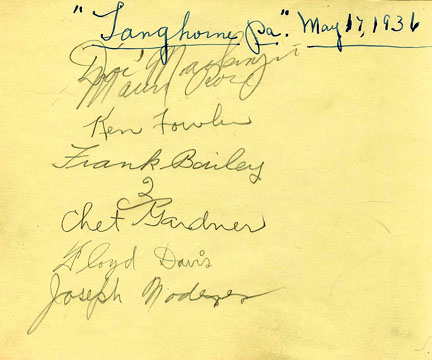 "Langhorne, Pa." May 17, 1936
"Doc" Mackenzie
Mauri Rose
Ken Fowler
Frank Bailey
2
Chet Gardner
Floyd Davis
Joseph